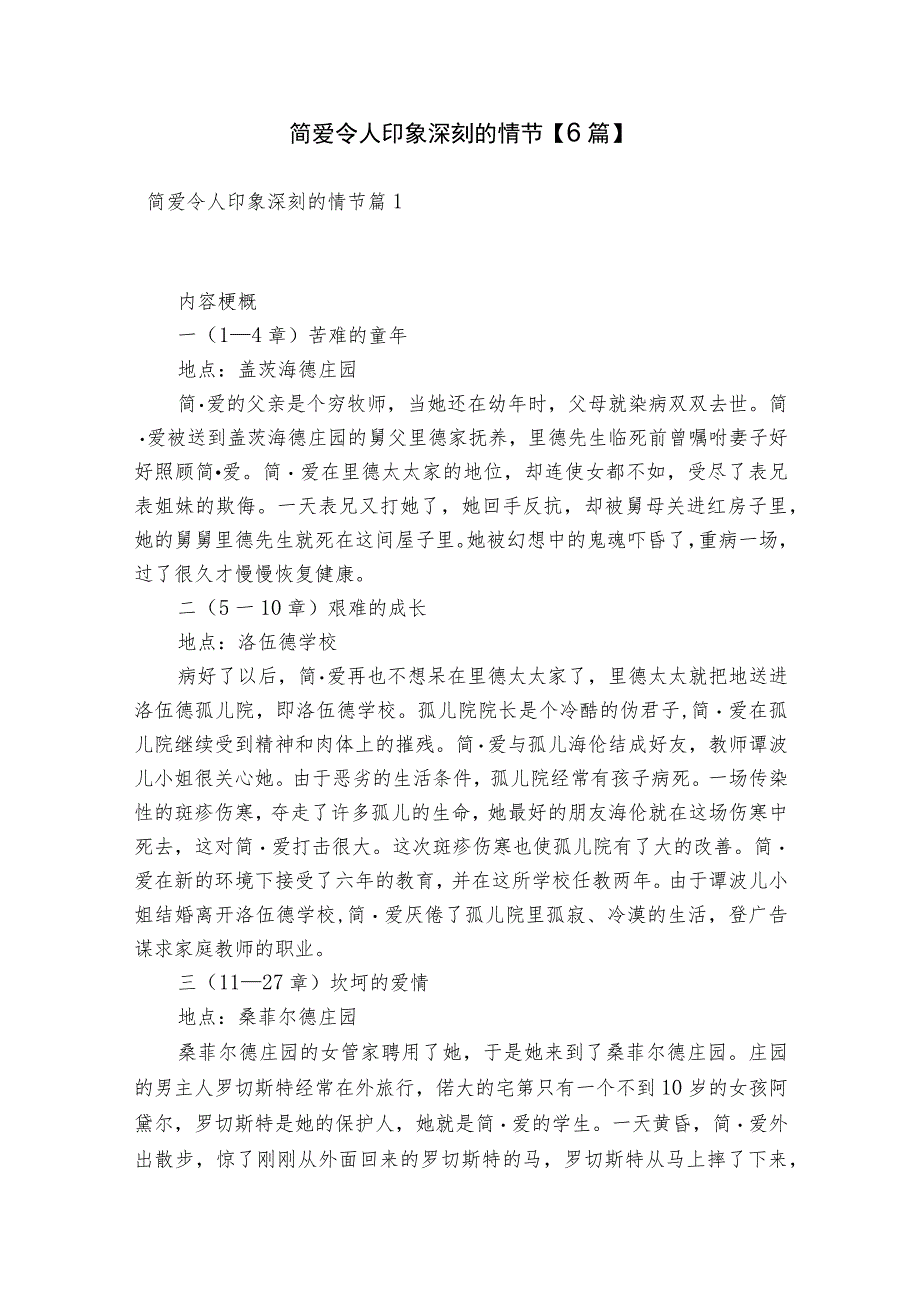 简爱令人印象深刻的情节【6 篇】
简爱令人印象深刻的情节篇 1
内容梗概
一（1—4 章）苦难的童年
地点：盖茨海德庄园
简·爱的父亲是个穷牧师，当她还在幼年时，父母就染病双双去世。简
·爱被送到盖茨海德庄园的舅父里德家抚养，里德先生临死前曾嘱咐妻子好
好照顾简•爱。简·爱在里德太太家的地位，却连使女都不如，受尽了表兄
表姐妹的欺侮。一天表兄又打她了，她回手反抗，却被舅母关进红房子里，
她的舅舅里德先生就死在这间屋子里。她被幻想中的鬼魂吓昏了，重病一场，
过了很久才慢慢恢复健康。
二（5 一 10 章）艰难的成长
地点：洛伍德学校
病好了以后，简·爱再也不想呆在里德太太家了，里德太太就把地送进
洛伍德孤儿院，即洛伍德学校。孤儿院院长是个冷酷的伪君子,简·爱在孤
儿院继续受到精神和肉体上的摧残。简·爱与孤儿海伦结成好友，教师谭波
儿小姐很关心她。由于恶劣的生活条件，孤儿院经常有孩子病死。一场传染
性的斑疹伤寒，夺走了许多孤儿的生命，她最好的朋友海伦就在这场伤寒中
死去，这对简·爱打击很大。这次斑疹伤寒也使孤儿院有了大的改善。简·
爱在新的环境下接受了六年的教育，并在这所学校任教两年。由于谭波儿小
姐结婚离开洛伍德学校,简·爱厌倦了孤儿院里孤寂、冷漠的生活，登广告
谋求家庭教师的职业。
三（11—27 章）坎坷的爱情
地点：桑菲尔德庄园
桑菲尔德庄园的女管家聘用了她，于是她来到了桑菲尔德庄园。庄园
的男主人罗切斯特经常在外旅行，偌大的宅第只有一个不到 10 岁的女孩阿
黛尔，罗切斯特是她的保护人，她就是简·爱的学生。一天黄昏，简·爱外
出散步，惊了刚刚从外面回来的罗切斯特的马，罗切斯特从马上摔了下来，